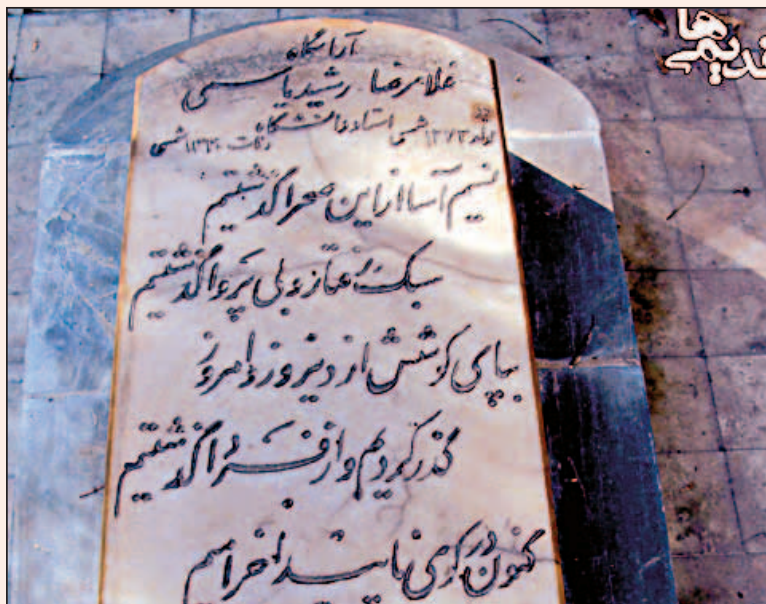 قدیمی‌ها
آرامگاه
غلامرضا رشید یاسمی
تولد شمسی استاد دانشگاه وفات ۱۳۳۰ شمسی
نسیم آسا از این صحرا گذشتیم
سبک رفتار و بی پروا گذشتیم
بپای کوشش از دیروز و امروز
گذر کردیم و از فردا گذشتیم
کنون در کوی ناپیدا خرامیم